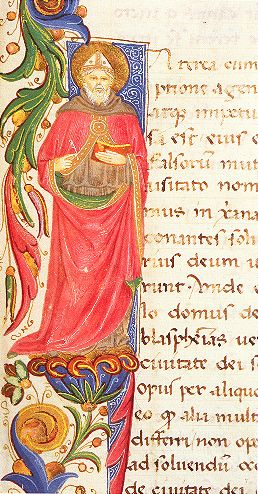 terea cum
ptione agen
atq; mixtu
sa est eius e
falsorũ mut
usitato nom
mus in xana
onantes solu
rius deum u
runt. Unde e
lo domus de
blasphẽias ue
ciuitate dei s
opus per aliquo
eo qͥ alii mult
differri non opo
ad soluendũ ce
de ciuitate dei